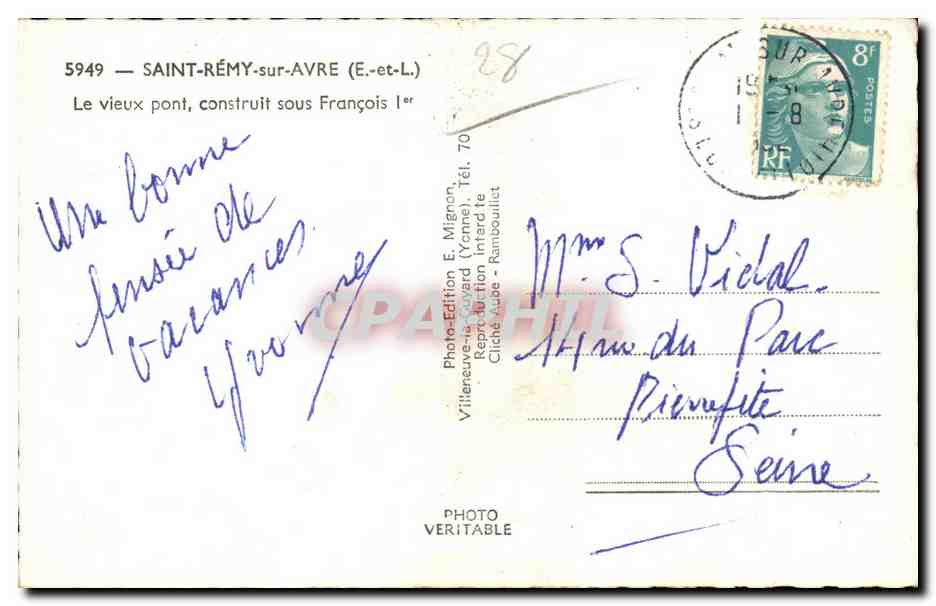 5949 — SAINT-RÉMY-sur-AVRE (E.-et-L.)
Le vieux pont, construit sous François Ier
28
Une bonne
pensée de
vacances
Yvonne
Photo-Edition E. Mignon,
Villeneuve-la-Guyard (Yonne). Tél. 70
Reproduction interdite
Cliché Aube - Rambouillet
PHOTO
VERITABLE
8F
POSTES
RF
SUR
Mme S. Vidal.
14 rue du Parc
Pierrefite
Seine
CPARHTL